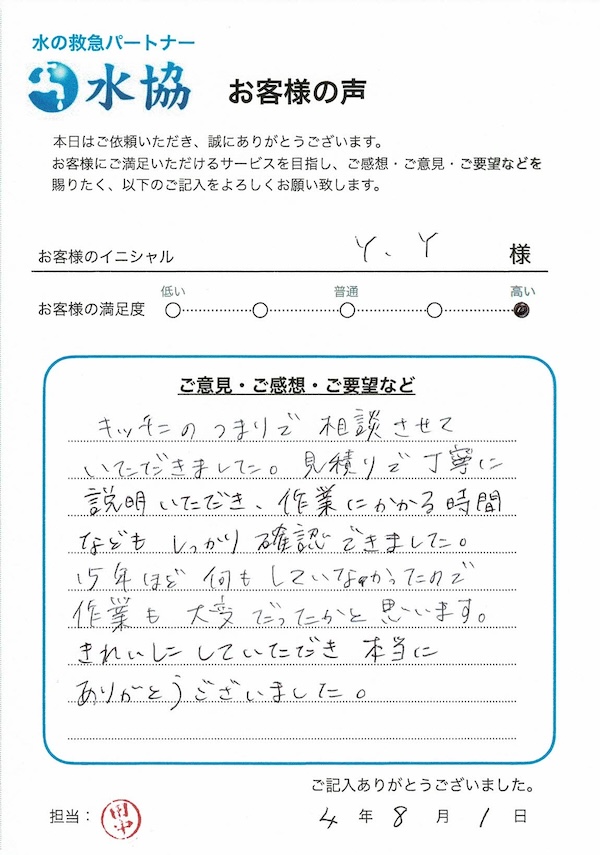 水の救急パートナー
水協 お客様の声
本日はご依頼いただき、誠にありがとうございます。
お客様にご満足いただけるサービスを目指し、ご感想・ご意見・ご要望などを
賜りたく、以下のご記入をよろしくお願い致します。
お客様のイニシャル Y、Y 様
低い 普通 高い
お客様の満足度
ご意見・ご感想・ご要望など
キッチンのつまりで 相談させて
いただきました。見積りで丁寧に
説明いただき、作業にかかる時間
などもしっかり確認できました。
15年ほど何もしていなかったので
作業も大変だったかと思います。
きれいにしていただき本当に
ありがとうございました。
ご記入ありがとうございました。
担当： 田中 4 年 8 月 1 日